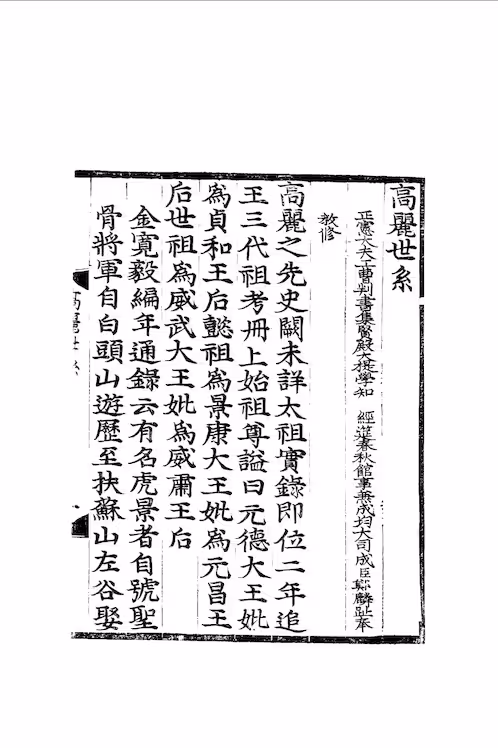 高麗世系
正憲大夫工曹判書集賢殿大提學知 經筵春秋館事兼成均大司成臣鄭麟趾奉
敎修
高麗之先史闕未詳太祖實錄即位二年追
王三代祖考冊上始祖尊謚曰元德大王妣
爲貞和王后懿祖爲景康大王妣爲元昌王
后世祖爲威武大王妣爲威肅王后
金寬毅編年通錄云有名虎景者自號聖
骨將軍自白頭山遊歷至扶蘇山左谷娶
高麗世系
一